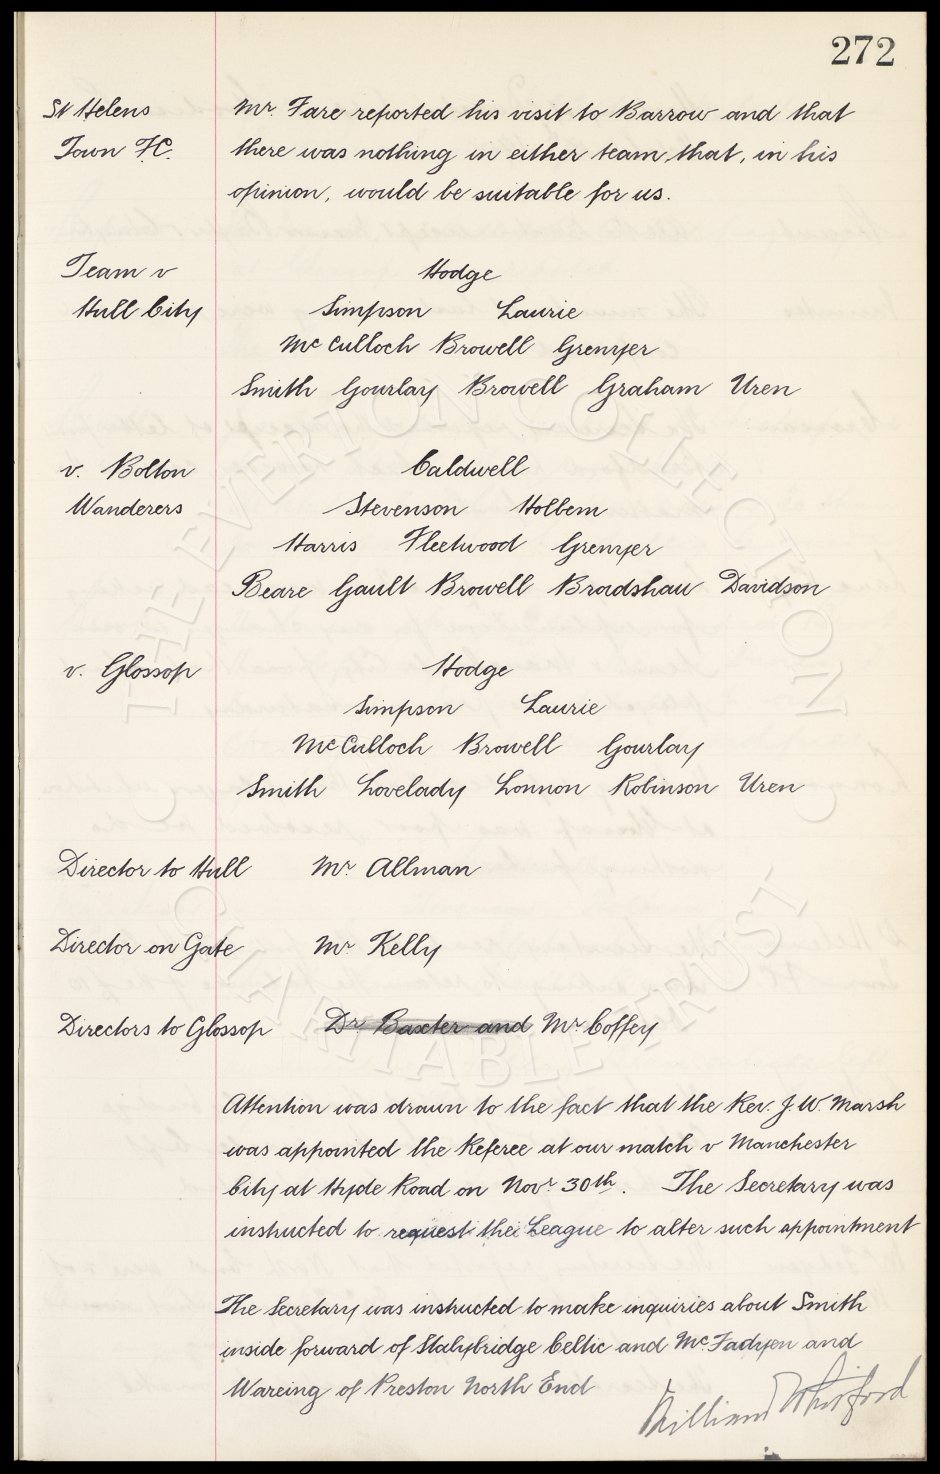 272
St Helens Mr. Fare reported his visit to Barrow and that
Town F.C. there was nothing in either team, that, in his
opinion, would be suitable for us.
Team v Hodge
Hull City Simpson Laurie
McCulloch Browell Grenyer
Smith Gourlay Browell Graham Uren
v. Bolton Caldwell
Wanderers Stevenson Holbem
Harris Fleetwood Grenyer
Beare Gault Browell Bradshaw Davidson
v. Glossop Hodge
Simpson Laurie
McCulloch Browell Gourlay
Smith Lovelady Lonnon Robinson Uren
Director to Hull Mr Allman
Director on Gate Mr Kelly
Directors to Glossop Dr. Baxter and Mr Coffey
Attention was drawn to the fact that the Rev. J.W. Marsh
was appointed the Referee at our match v Manchester
City at Hyde Road on Novr 30th. The Secretary was
instucted to request the League to alter such appointment
The Secretary was instructed to make inquiries about Smith
inside forward of Stalybridge Celtic and McFadyen and
Wareing of Preston North End
William Whitford
THE EVERTON COLLECTION
CHARITABLE TRUST